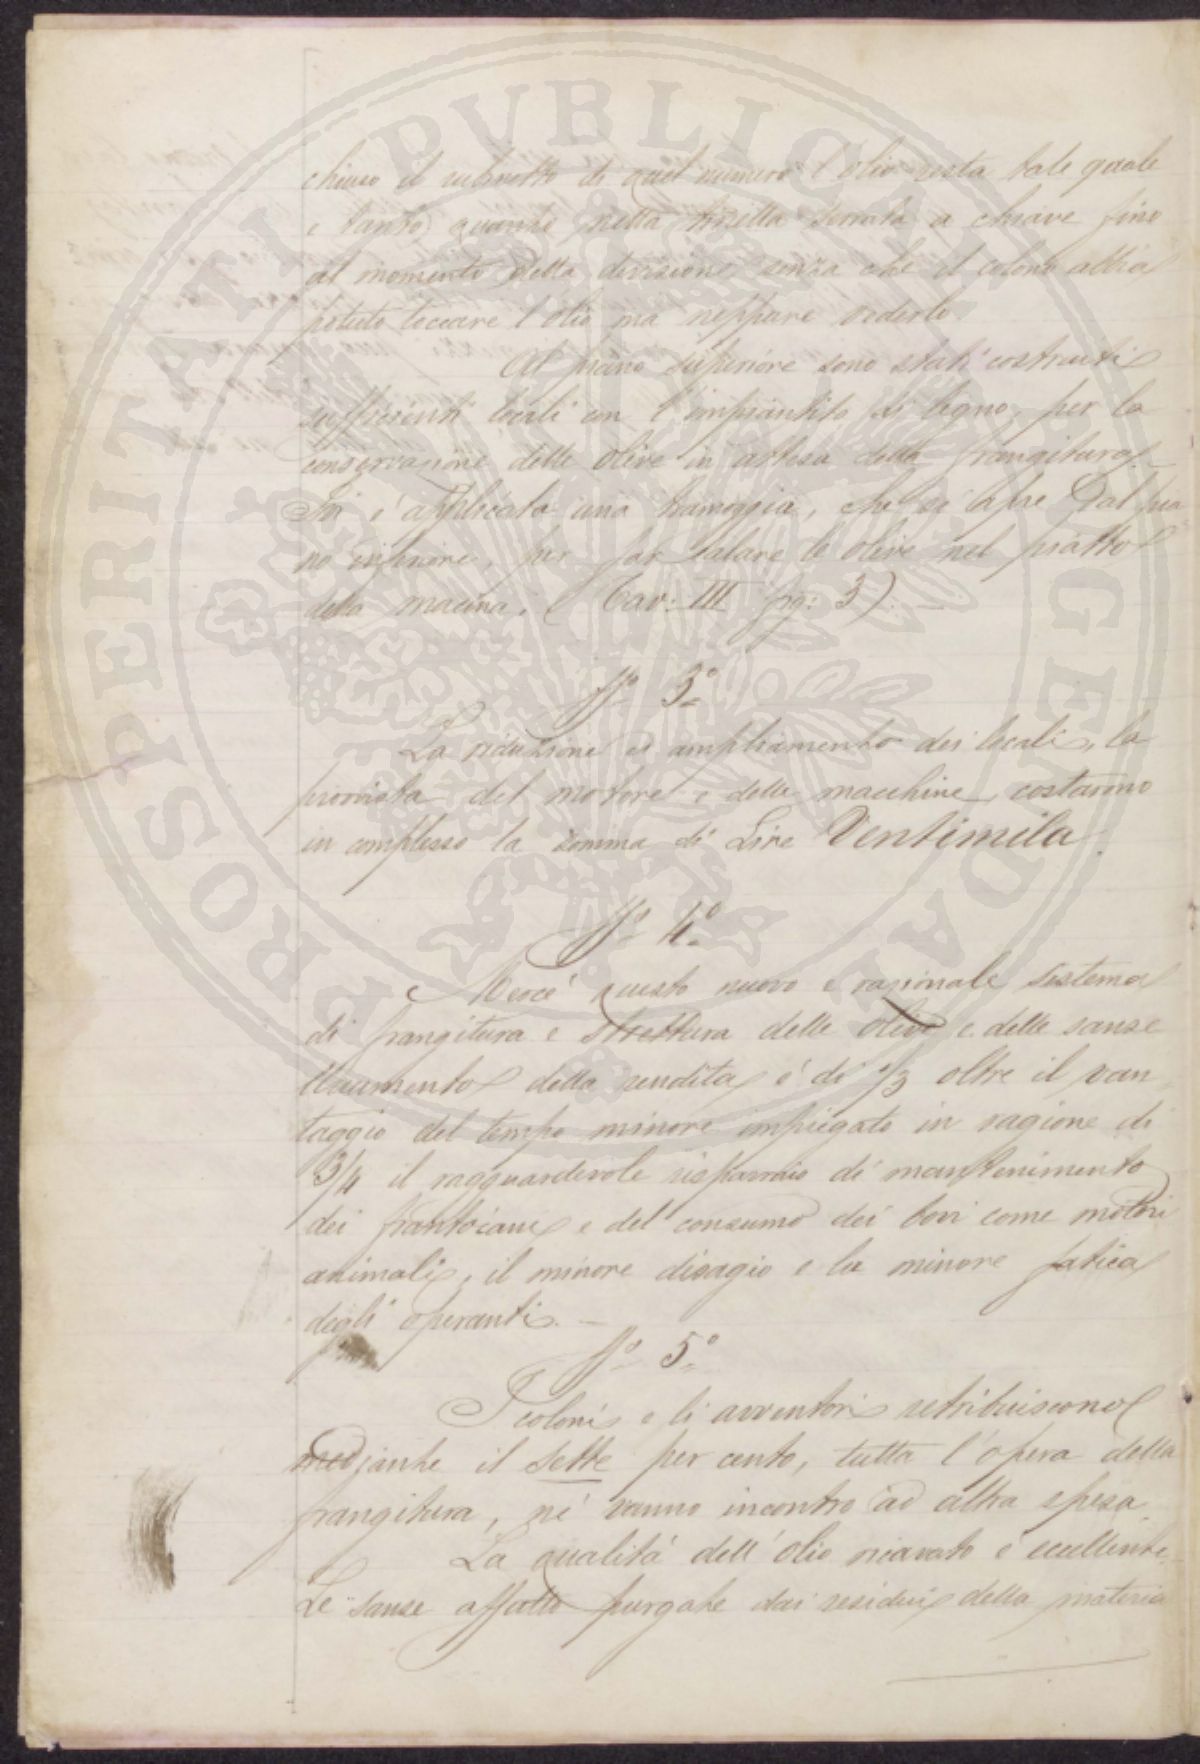 chiuso il rubinetto di quel numero l'olio resta tale quale
e tanto quanto nella tinella serrata a chiave fino
al momento della divisione, senza che il colono abbia
potuto toccare l'olio ma neppure vederlo.
Al piano superiore sono stati costruiti
sufficienti locali con l'impiantito di legno, per la
conservazione delle olive in attesa della frangitura.
Ivi è applicata una tramoggia, che si apre dal pia
no inferiore, per far calare le olive nel piatto
della macina. (Tav: III fig: 3).
№ 3º
La riduzione ed ampliamento dei locali, la
provvista del motore e delle macchine, costarono
in complesso la somma di Lire Ventimila.
№ 4º
Mercè questo nuovo e razionale sistema
di frangitura e strettura delle olive e delle sanse
l'aumento della rendita è di 1/3 oltre il van
taggio del tempo minore impiegato in ragione di
3/4 il ragguardevole risparmio di mantenimento
dei frantoiani e del consumo dei bovi come motori
animali, il minore disagio e la minore fatica
degli operanti. —
№ 5º
I coloni e li avventori retribuiscono
mediante il sette per cento, tutta l'opera della
frangitura, nè vanno incontro ad altra spesa.
La qualità dell'olio ricavato è eccellente.
Le sanse affatto purgate dai residui della materia
PROSPERITATI PVBLICAE AVGENDAE